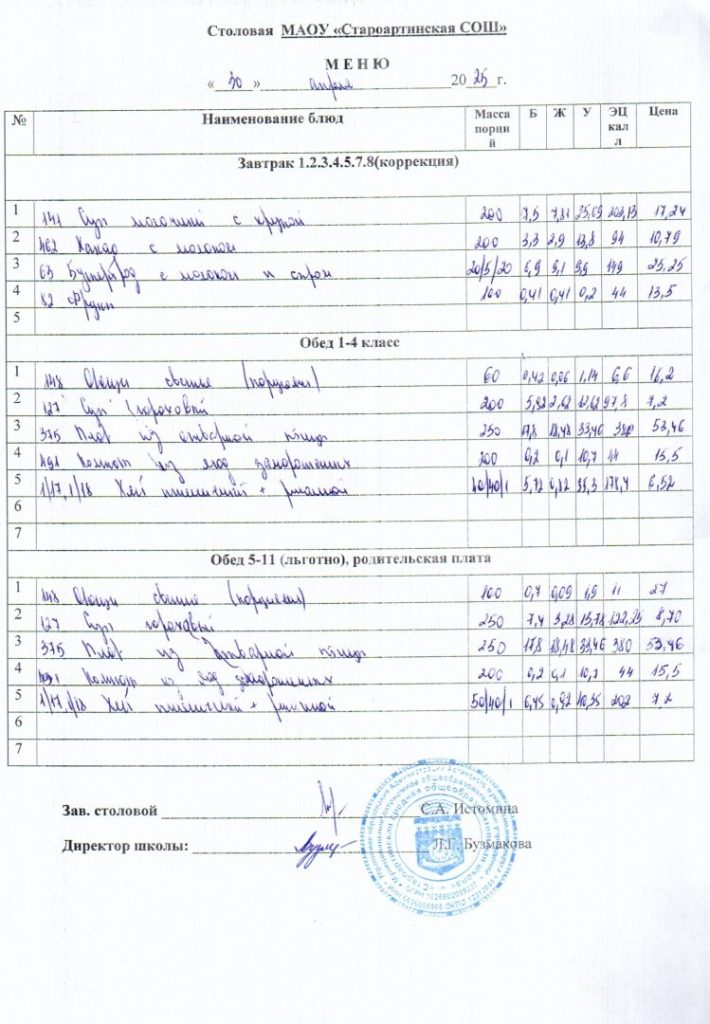 Столовая МАОУ «Староартинская СОШ»
М Е Н Ю
«30» апреля 2025 г.
№ Наименование блюд Масса порций Б Ж У ЭЦ калл Цена
Завтрак 1.2.3.4.5.7.8(коррекция)
1 141 Суп молочный с крупой 200 7,5 7,81 25,09 202,13 17,24
2 462 Какао с молоком 200 3,3 2,9 13,8 94 10,79
3 63 Бутерброд с маслом и сыром 20/5/20 6,9 9,1 9,9 149 25,25
4 82 Фрукт 100 0,41 0,41 0,2 44 13,5
5
Обед 1-4 класс
1 148 Овощи свежие (порциями) 60 0,42 0,06 1,14 6,6 16,2
2 127 Суп гороховый 200 5,92 2,62 12,62 97,8 7,2
3 375 Плов из отварной птицы 250 17,8 18,48 33,46 380 53,46
4 491 Компот из ягод замороженных 200 0,2 0,1 10,7 44 15,5
5 1/17,1/18 Хлеб пшеничный + ржаной 40/40/1 5,72 0,82 35,3 178,4 6,52
6
7
Обед 5-11 (льготно), родительская плата
1 148 Овощи свежие (порциями) 100 0,7 0,09 1,9 11 27
2 127 Суп гороховый 250 7,4 3,28 15,78 122,25 8,70
3 375 Плов из отварной птицы 250 17,8 18,48 33,46 380 53,46
4 491 Компот из ягод замороженных 200 0,2 0,1 10,7 44 15,5
5 1/17,1/18 Хлеб пшеничный + ржаной 50/40/1 6,45 0,92 40,35 202 7,2
6
7
Зав. столовой С.А. Истомина
Директор школы: Л.Г. Бузмакова